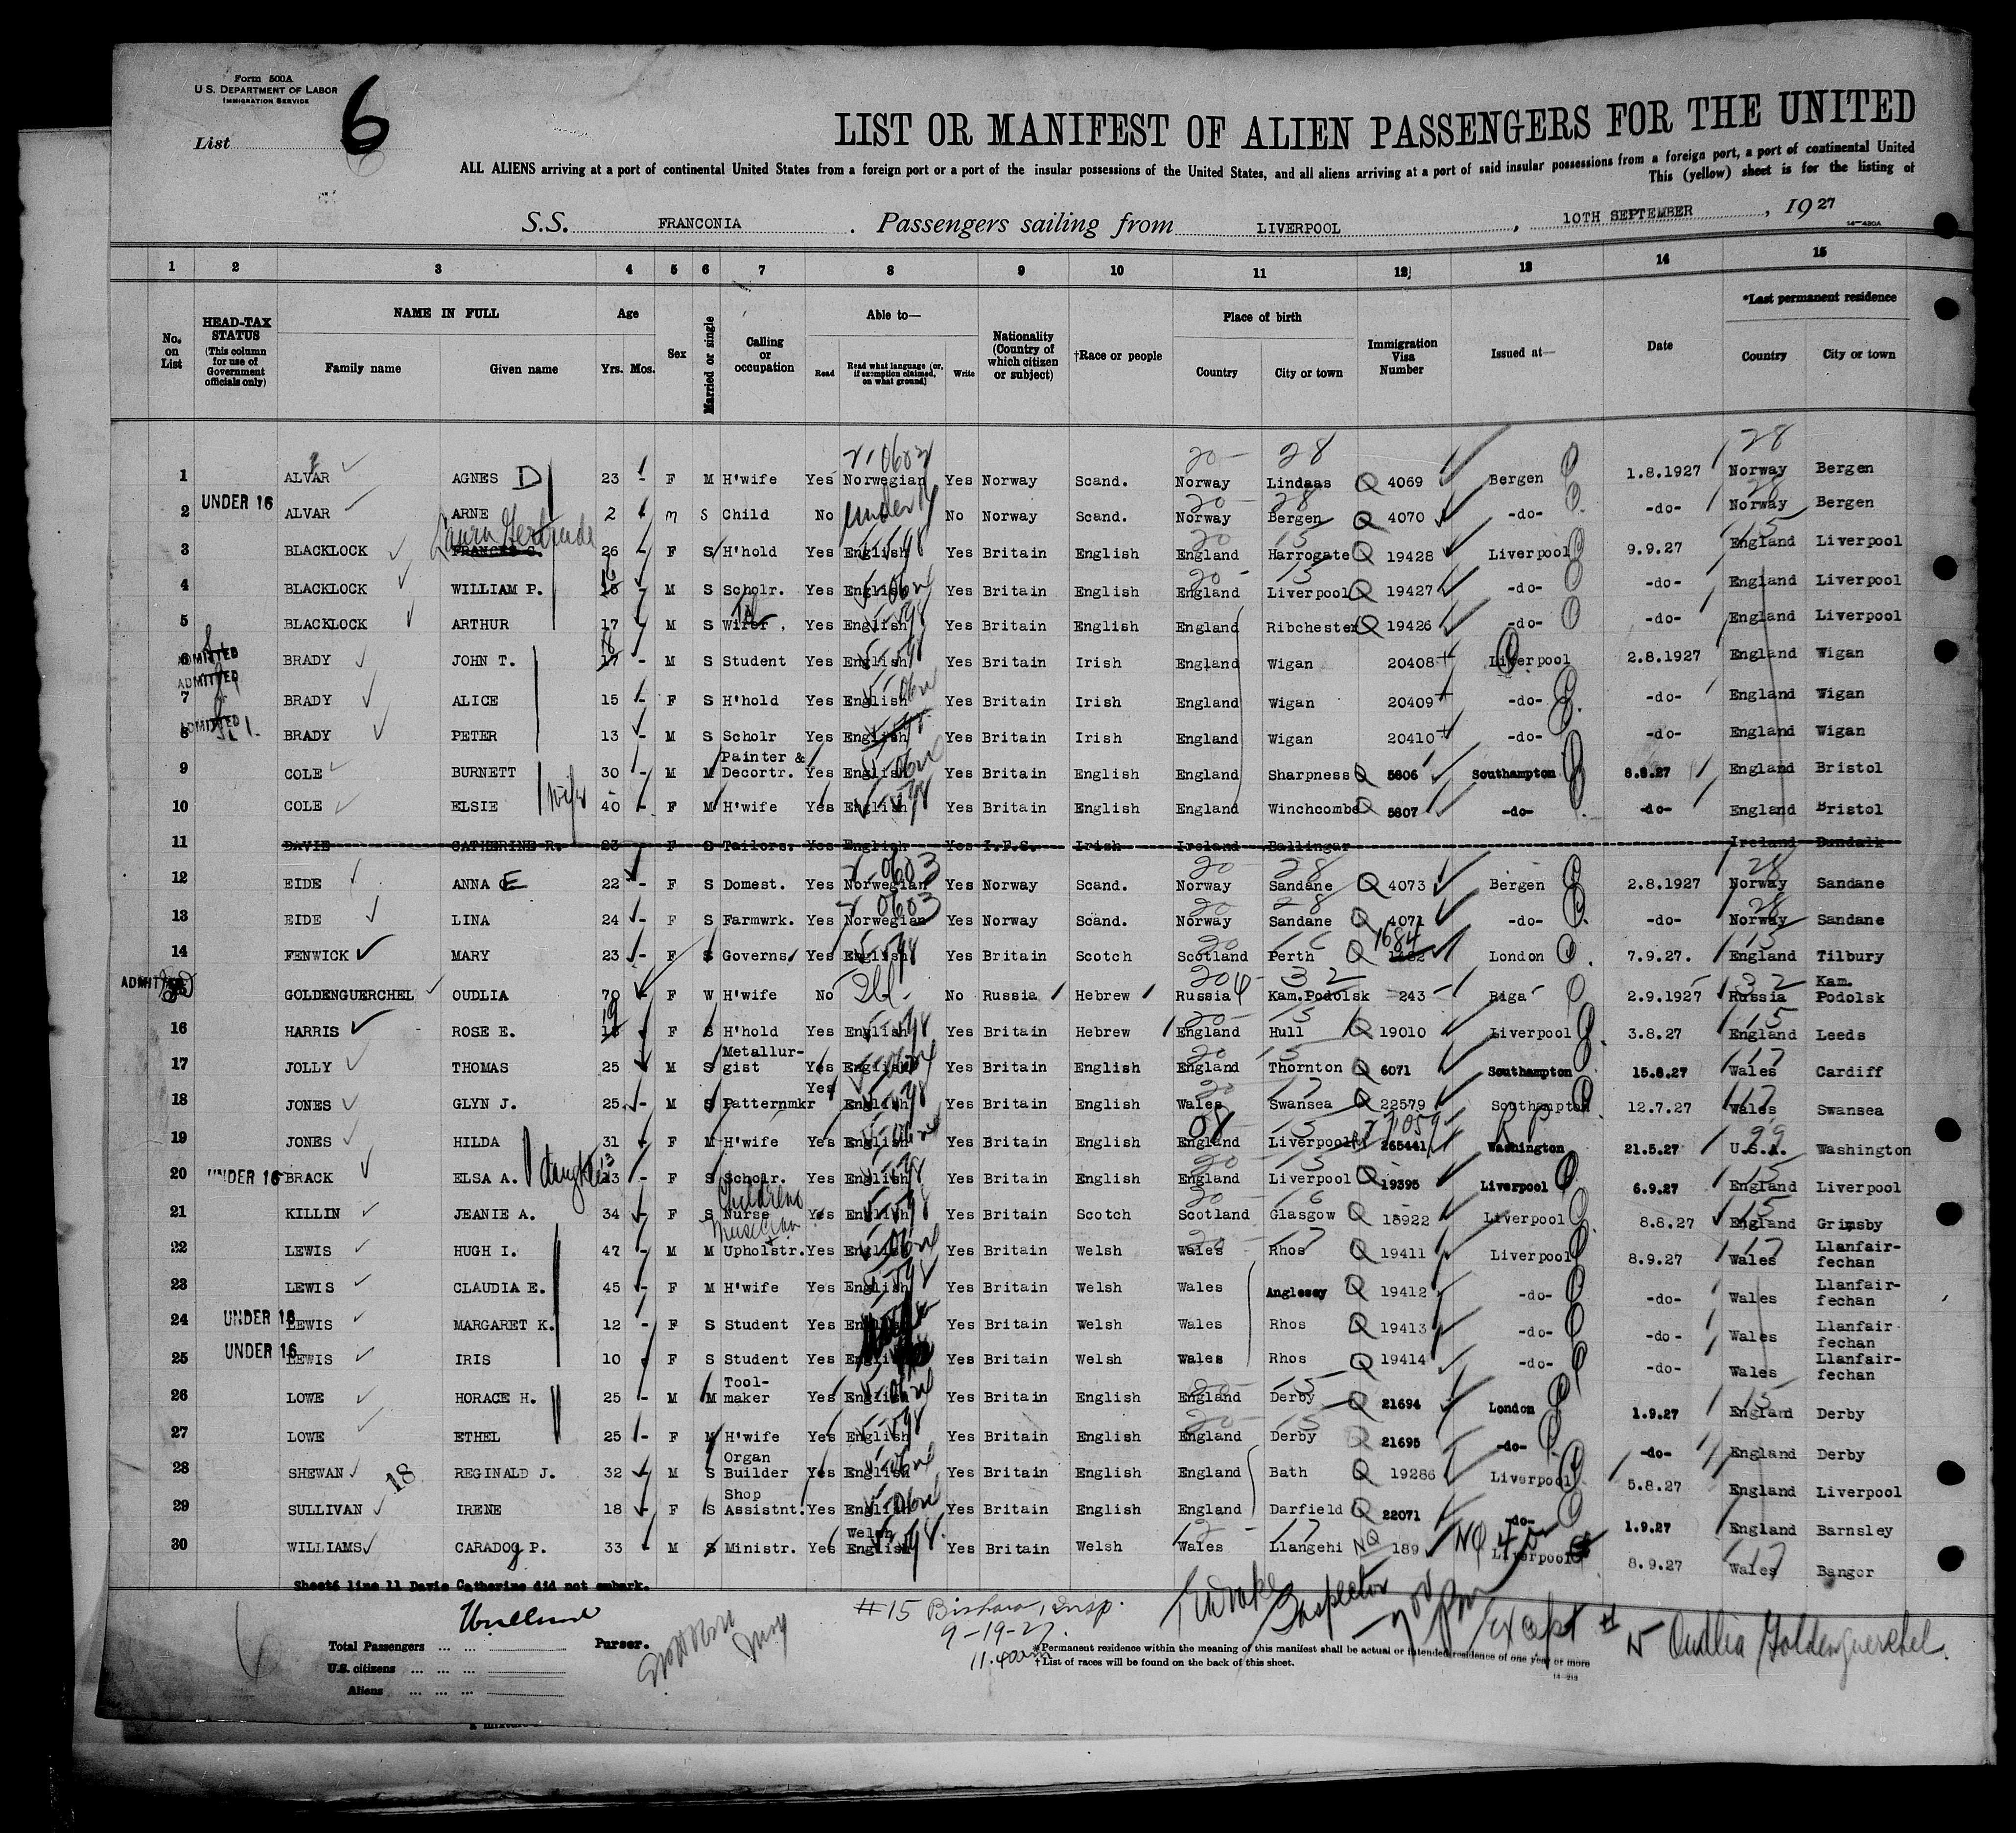 Form 500A
U.S. DEPARTMENT OF LABOR
IMMIGRATION SERVICE
List 6
LIST OR MANIFEST OF ALIEN PASSENGERS FOR THE UNITED
ALL ALIENS arriving at a port of continental United States from a foreign port or a port of the insular possessions of the United States, and all aliens arriving at a port of said insular possessions from a foreign port, a port of continental United
This (yellow) sheet is for the listing of
S.S. FRANCONIA . Passengers sailing from LIVERPOOL , 10TH SEPTEMBER , 1927
14—430A
1 2 3 4 5 6 7 8 9 10 11 12 13 14 15
No. on List
HEAD-TAX STATUS (This column for use of Government officials only)
NAME IN FULL
Family name Given name
Age
Yrs. Mos.
Sex
Married or single
Calling or occupation
Able to—
Read Read what language (or, if exemption claimed, on what ground) Write
Nationality (Country of which citizen or subject)
†Race or people
Place of birth
Country City or town
Immigration Visa Number
Issued at—
Date
*Last permanent residence
Country City or town
1 ALVAR AGNES D 23 - F M H'wife Yes Norwegian Yes Norway Scand. Norway Lindaas Q 4069 Bergen 1.8.1927 Norway Bergen
2 UNDER 16 ALVAR ARNE 2 - M S Child No under 16 No Norway Scand. Norway Bergen Q 4070 -do- -do- Norway Bergen
3 BLACKLOCK FRANCES G. Laura Gertrude 26 - F S H'hold Yes English Yes Britain English England Harrogate Q 19428 Liverpool 9.9.27 England Liverpool
4 BLACKLOCK WILLIAM P. 16 - M S Scholr. Yes English Yes Britain English England Liverpool Q 19427 -do- -do- England Liverpool
5 BLACKLOCK ARTHUR 17 M S Yes English Yes Britain English England Ribchester Q 19426 -do- -do- England Liverpool
6 ADMITTED BRADY JOHN T. 17 18 - M S Student Yes English Yes Britain Irish England Wigan 20408 Liverpool 2.8.1927 England Wigan
7 ADMITTED BRADY ALICE 15 - F S H'hold Yes English Yes Britain Irish England Wigan 20409 -do- -do- England Wigan
8 ADMITTED BRADY PETER 13 - M S Scholr Yes English Yes Britain Irish England Wigan 20410 -do- -do- England Wigan
9 COLE BURNETT 30 - M M Painter & Decortr. Yes English Yes Britain English England Sharpness Q 5806 Southampton 8.8.27 England Bristol
10 COLE ELSIE wife 40 - F M H'wife Yes English Yes Britain English England Winchcombe Q 5807 -do- -do- England Bristol
11 DAVIE CATHERINE R. 23 - F S Tailors. Yes English Yes I.F.S. Irish Ireland Ballingar Ireland Dundalk
12 EIDE ANNA E 22 - F S Domest. Yes Norwegian Yes Norway Scand. Norway Sandane Q 4073 Bergen 2.8.1927 Norway Sandane
13 EIDE LINA 24 - F S Farmwrk. Yes Norwegian Yes Norway Scand. Norway Sandane Q 4071 -do- -do- Norway Sandane
14 FENWICK MARY 23 - F S Governs. Yes English Yes Britain Scotch Scotland Perth Q 1684 London 7.9.27. England Tilbury
ADMITTED GOLDENGUERCHEL OUDLIA 70 - F W H'wife No No Russia Hebrew Russia Kam.Podolsk 243 Riga 2.9.1927 Russia Kam. Podolsk
16 HARRIS ROSE E. 19 F S H'hold Yes English Yes Britain Hebrew England Hull Q 19010 Liverpool 3.8.27 England Leeds
17 JOLLY THOMAS 25 M S Metallur-gist Yes English Yes Britain English England Thornton Q 6071 Southampton 15.8.27 Wales Cardiff
18 JONES GLYN J. 25 - M S Patternmkr Yes English Yes Britain English Wales Swansea Q 22579 Southampton 12.7.27 Wales Swansea
19 JONES HILDA 31 F M H'wife Yes English Yes Britain English England Liverpool 265441 Washington R P 21.5.27 U.S.A. Washington
20 UNDER 16 BRACK ELSA A. daughter 13 - F S Scholr. Yes English Yes Britain English England Liverpool Q 19395 Liverpool 6.9.27 England Liverpool
21 KILLIN JEANIE A. 34 - F S Childrens Nurse Yes English Yes Britain Scotch Scotland Glasgow Q 15922 Liverpool 8.8.27 England Grimsby
22 LEWIS HUGH I. 47 - M M Musician Upholstr. Yes English Yes Britain Welsh Wales Rhos Q 19411 Liverpool 8.9.27 Wales Llanfair-fechan
23 LEWIS CLAUDIA E. 45 - F M H'wife Yes English Yes Britain Welsh Wales Anglesey Q 19412 -do- -do- Wales Llanfair-fechan
24 UNDER 16 LEWIS MARGARET K. 12 - F S Student Yes English Yes Britain Welsh Wales Rhos Q 19413 -do- -do- Wales Llanfair fechan
25 UNDER 16 LEWIS IRIS 10 F S Student Yes English Yes Britain Welsh Wales Rhos Q 19414 -do- -do- Wales Llanfair-fechan
26 LOWE HORACE H. 25 - M M Tool-maker Yes English Yes Britain English England Derby Q 21694 London 1.9.27 England Derby
27 LOWE ETHEL 25 - F M H'wife Yes English Yes Britain English England Derby Q 21695 -do- -do- England Derby
28 SHEWAN 18 REGINALD J. 32 M S Organ Builder Yes English Yes Britain English England Bath Q 19286 Liverpool 5.8.27 England Liverpool
29 SULLIVAN IRENE 18 - F S Shop Assistnt. Yes English Yes Britain English England Darfield Q 22071 -do- 1.9.27 England Barnsley
30 WILLIAMS CARADOG P. 33 - M S Ministr. Yes Welsh English Yes Britain Welsh Wales Llangehi NQ 189 Liverpool 8.9.27 Wales Bangor
Sheet6 line 11 Davie Catherine did not embark.
Purser.
Total Passengers
U.S. citizens
Aliens
#15 Insp.
9-19-27.
11.40am
Inspector
Except # 15 Oudlia Goldenguerchel.
*Permanent residence within the meaning of this manifest shall be actual or intended residence of one year or more
†List of races will be found on the back of this sheet.